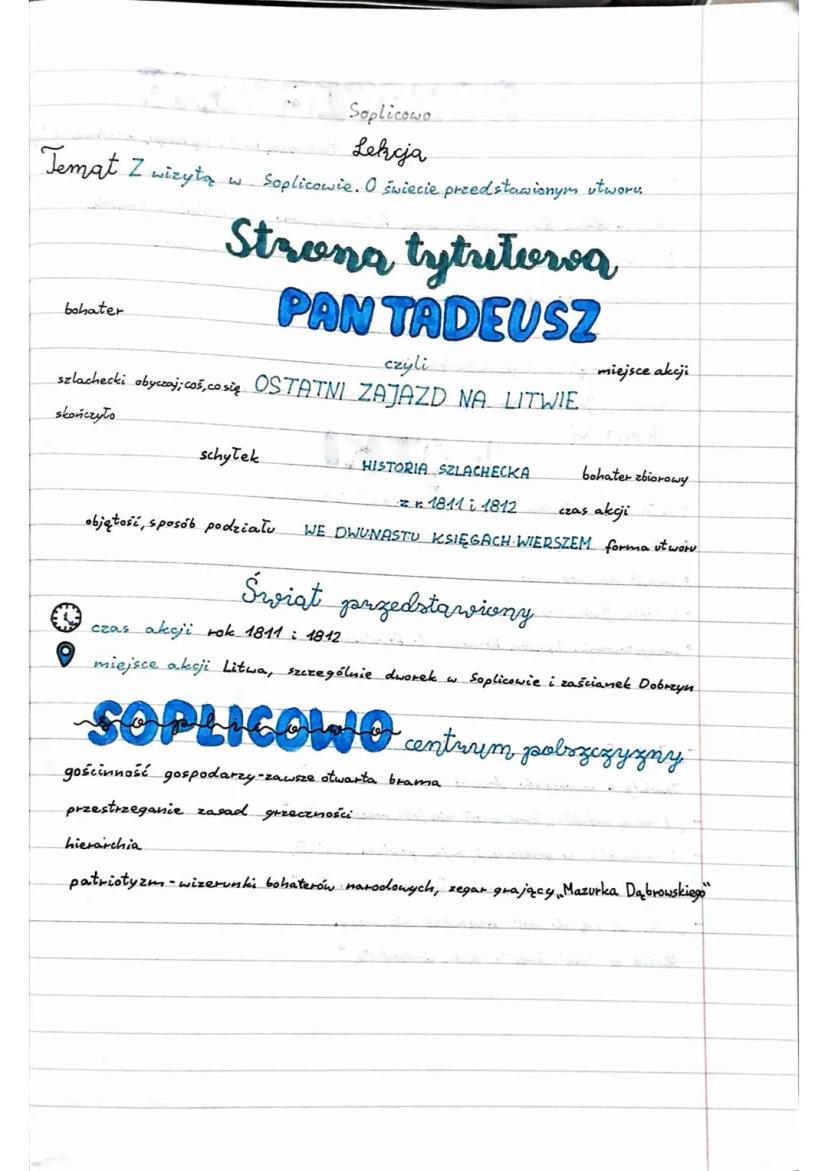 Soplicowo
Lekcja
Temat Z wizytą w Soplicowie. O świecie przedstawionym utworu.
Strona tytułowa
bohater PAN TADEUSZ
czyli miejsce akcji
szlachecki obyczaj; coś, co się OSTATNI ZAJAZD NA LITWIE
skończyło
schyłek HISTORIA SZLACHECKA bohater zbiorowy
z r. 1811 i 1812 czas akcji
objętość, sposób podziału WE DWUNASTU KSIĘGACH WIERSZEM forma utworu
Świat przedstawiony
czas akcji rok 1811 i 1812
miejsce akcji Litwa, szczególnie dworek w Soplicowie i zaścianek Dobrzyn
SOPLICOWO centrum polszczyzny
soplicowo
gościnność gospodarzy-zawsze otwarta brama
przestrzeganie zasad grzeczności
hierarchia
patriotyzm - wizerunki bohaterów narodowych, zegar grający „Mazurka Dąbrowskiego"